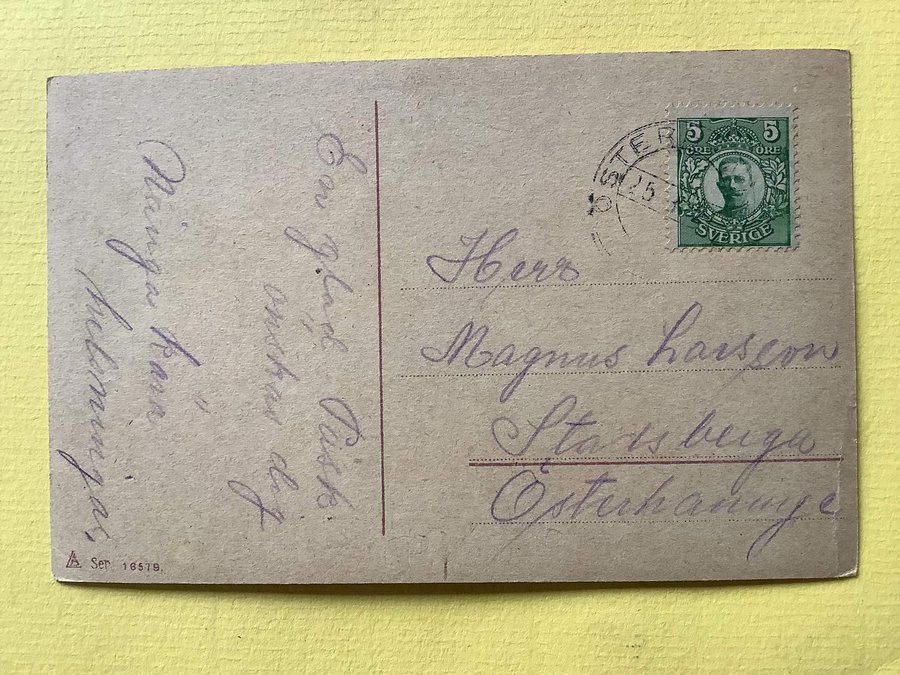 En glad Påsk
önskas dig
Många kära
helsningar,
5 5
ÖRE ÖRE
SVERIGE
ÖSTER
25
Herr
Magnus Larsson
Stadsberga
Österhaninge
Ser 16579.